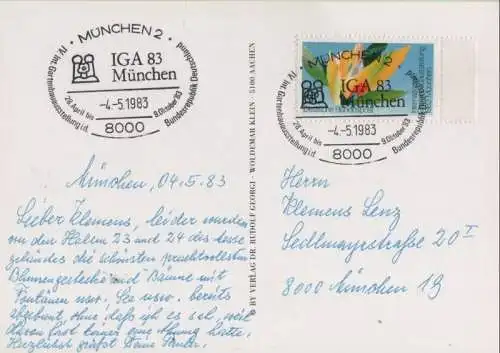 MÜNCHEN 2
IV. Int. Gartenbauausstellung i.d. Bundesrepublik Deutschland
IGA 83
München
28. April bis 9. Oktober 83
-4.-5.1983
8000
MÜNCHEN 2
IV. Int. Gartenbauausstellung i.d. Bundesrepublik
IGA 83
München
28. April bis 9. Oktober 83
-4.-5.1983
8000
BY VERLAG DR RUDOLF GEORGI - WOLDEMAR KLEIN - 5100 AACHEN
München, 04.5.83
Lieber Klemens, leider wurden
in den Hallen 23 und 24 des Messe
geländes die schönsten prachtvollsten
Blumengestecke und Bäume mit
Fontänen usw. See usw. bereits
abgebaut, ohne daß ich es sah, weil
davon fast keiner eine Ahnung hatte.
Herzlichst grüßt Deine
Herrn
Klemens Lenz
Sedlmayrstraße 20 I
8000 München 19